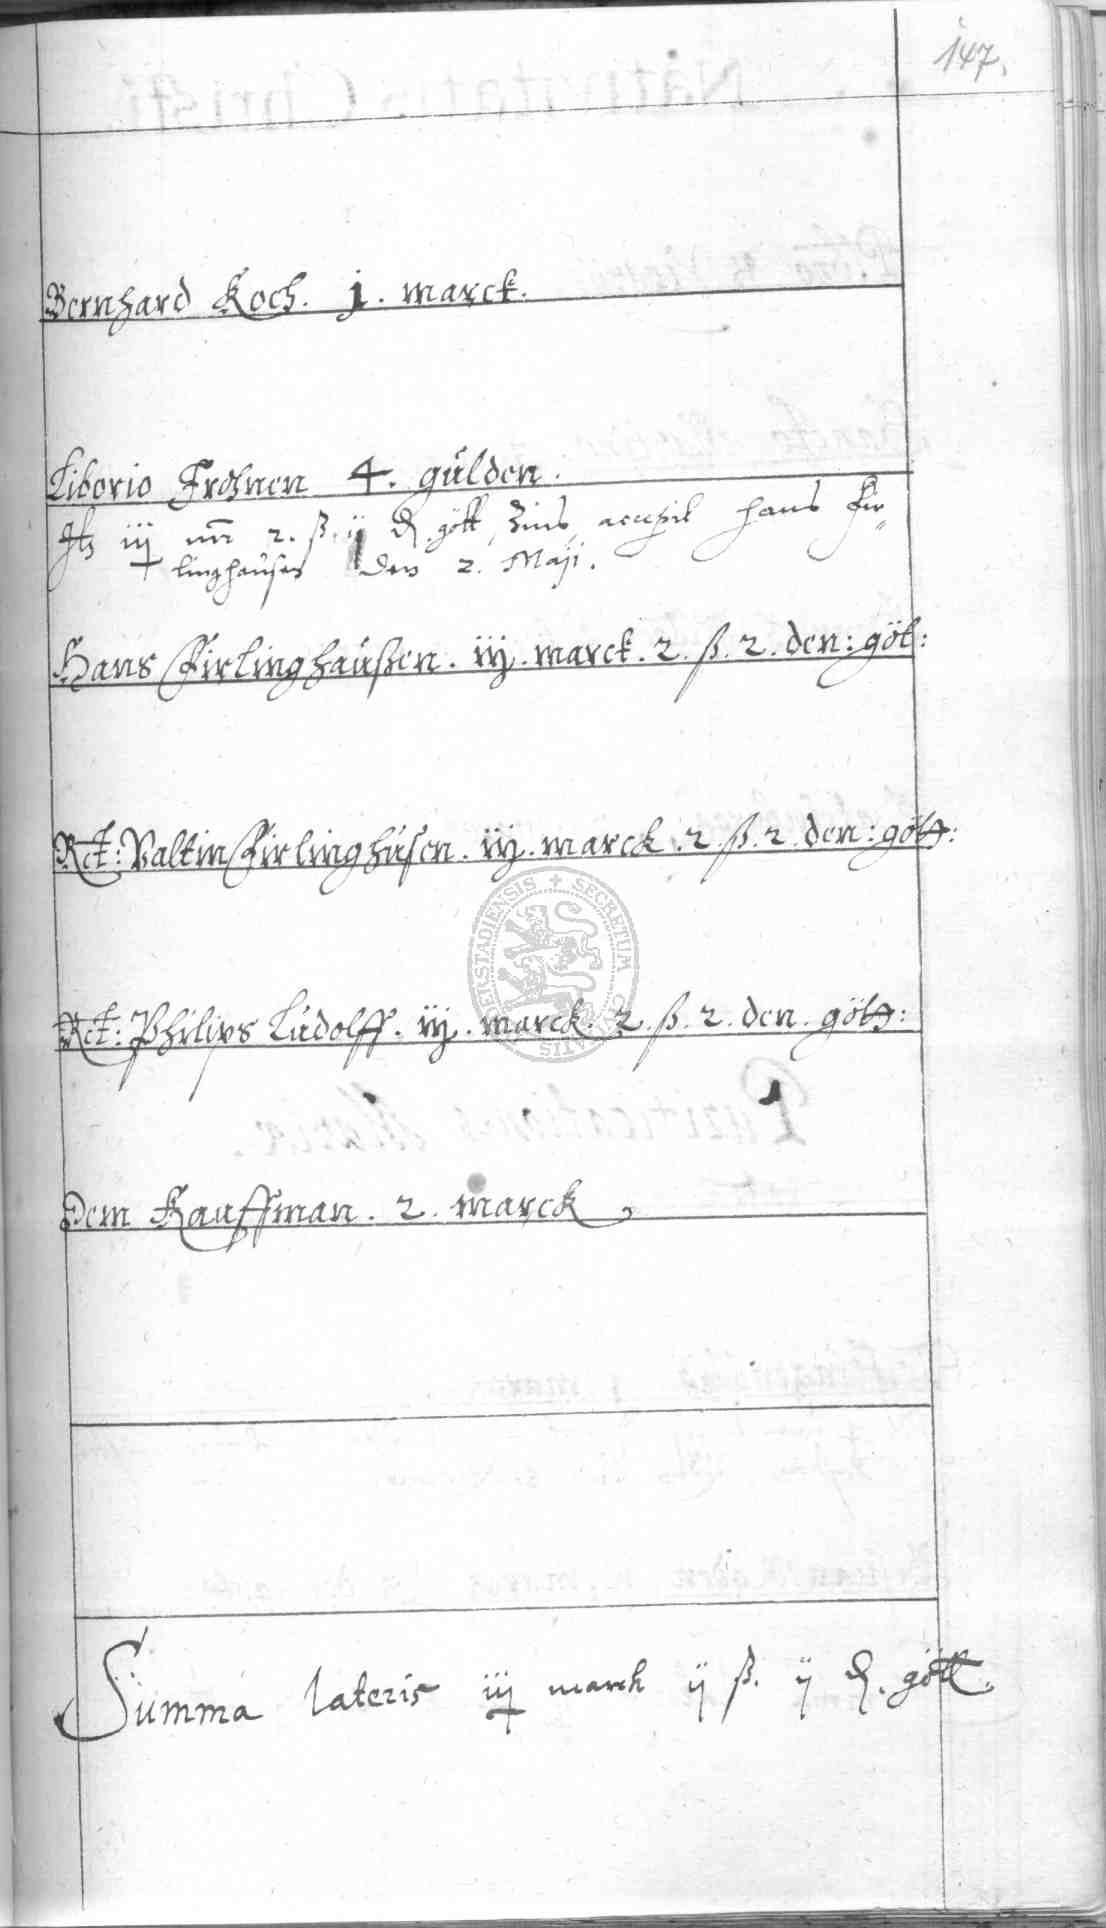 147.
Bernhard Koch. j. marck.
Liborio Frohnen 4. gülden.
iij mr 2. ß. ij d. gött Zins accepit hans Fir-
linghausen den 2. Maji.
Hans Firlinghaußen. iij. marck. 2. ß. 2. den: göt:
Rct: Valtin Firlinghúsen. iij. marck. 2. ß. 2. den: gött:
Rct: Philips Lúdolff. iij. marck. 2. ß. 2. den. gött:
Dem Kauffman. 2. marck
Summa lateris iij marck ij ß. ij d. gött.
SECRETUM